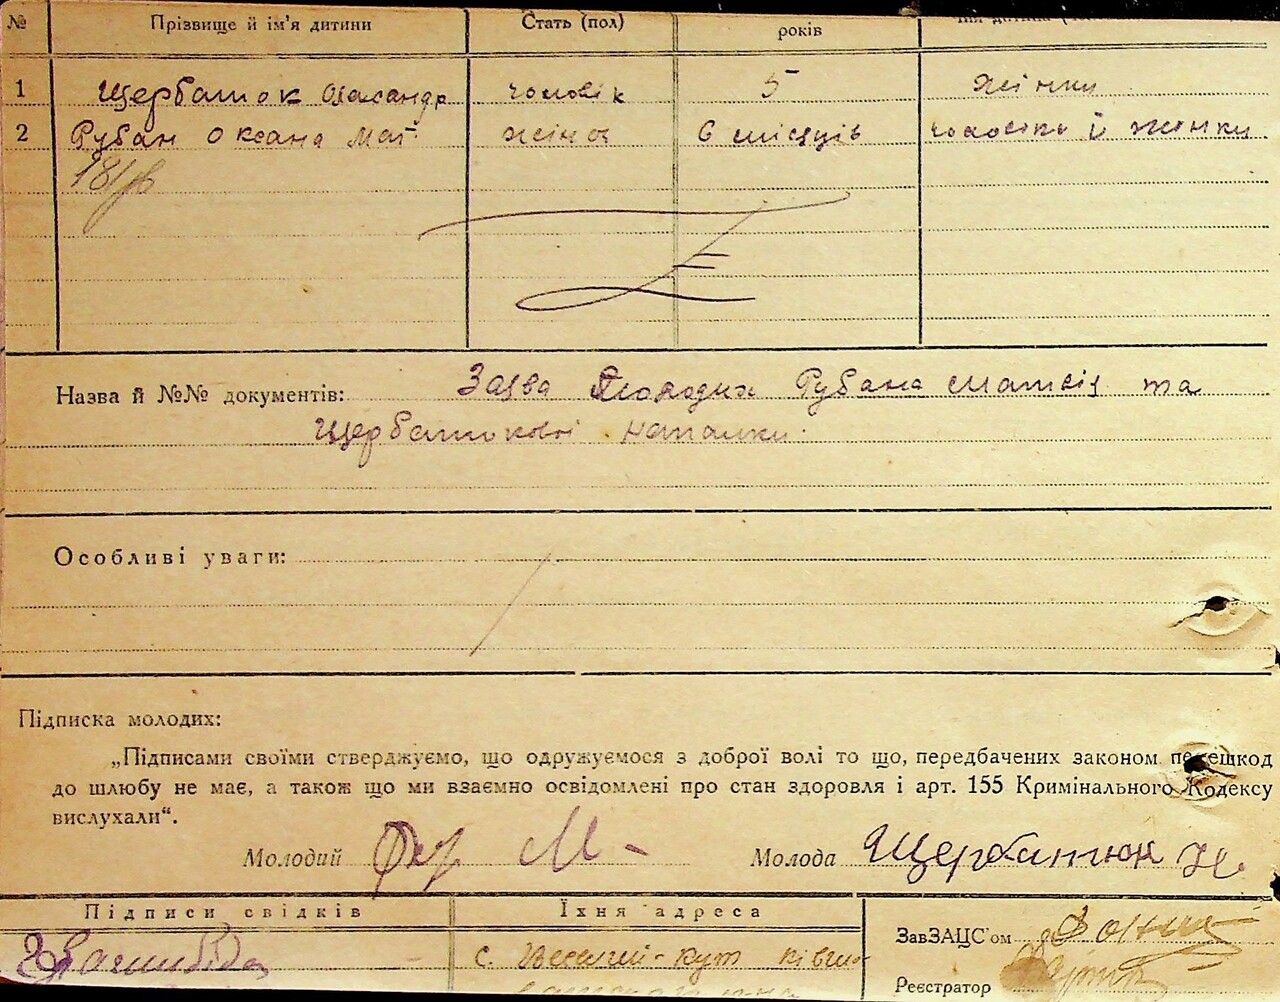 № Прізвище й ім'я дитини Стать (пол) років
1 Щербатюк Олександр чоловік 5 жінки
2 Рубан Оксана Мат. жіноч 6 місяців чоловіка й жінки
Назва й №№ документів: Заява молодих Рубана Матвія та
Щербатюкової Наталки.
Особливі уваги:
Підписка молодих:
„Підписами своїми стверджуємо, що одружуємося з доброї волі то що, передбачених законом перешкод
до шлюбу не має, а також що ми взаємно освідомлені про стан здоровля і арт. 155 Кримінального Кодексу
вислухали“.
Молодий М Молода Щербатюк Н.
Підписи свідків Їхня адреса
ЗавЗАЦС'ом
с. Веселий-Кут
Реєстратор